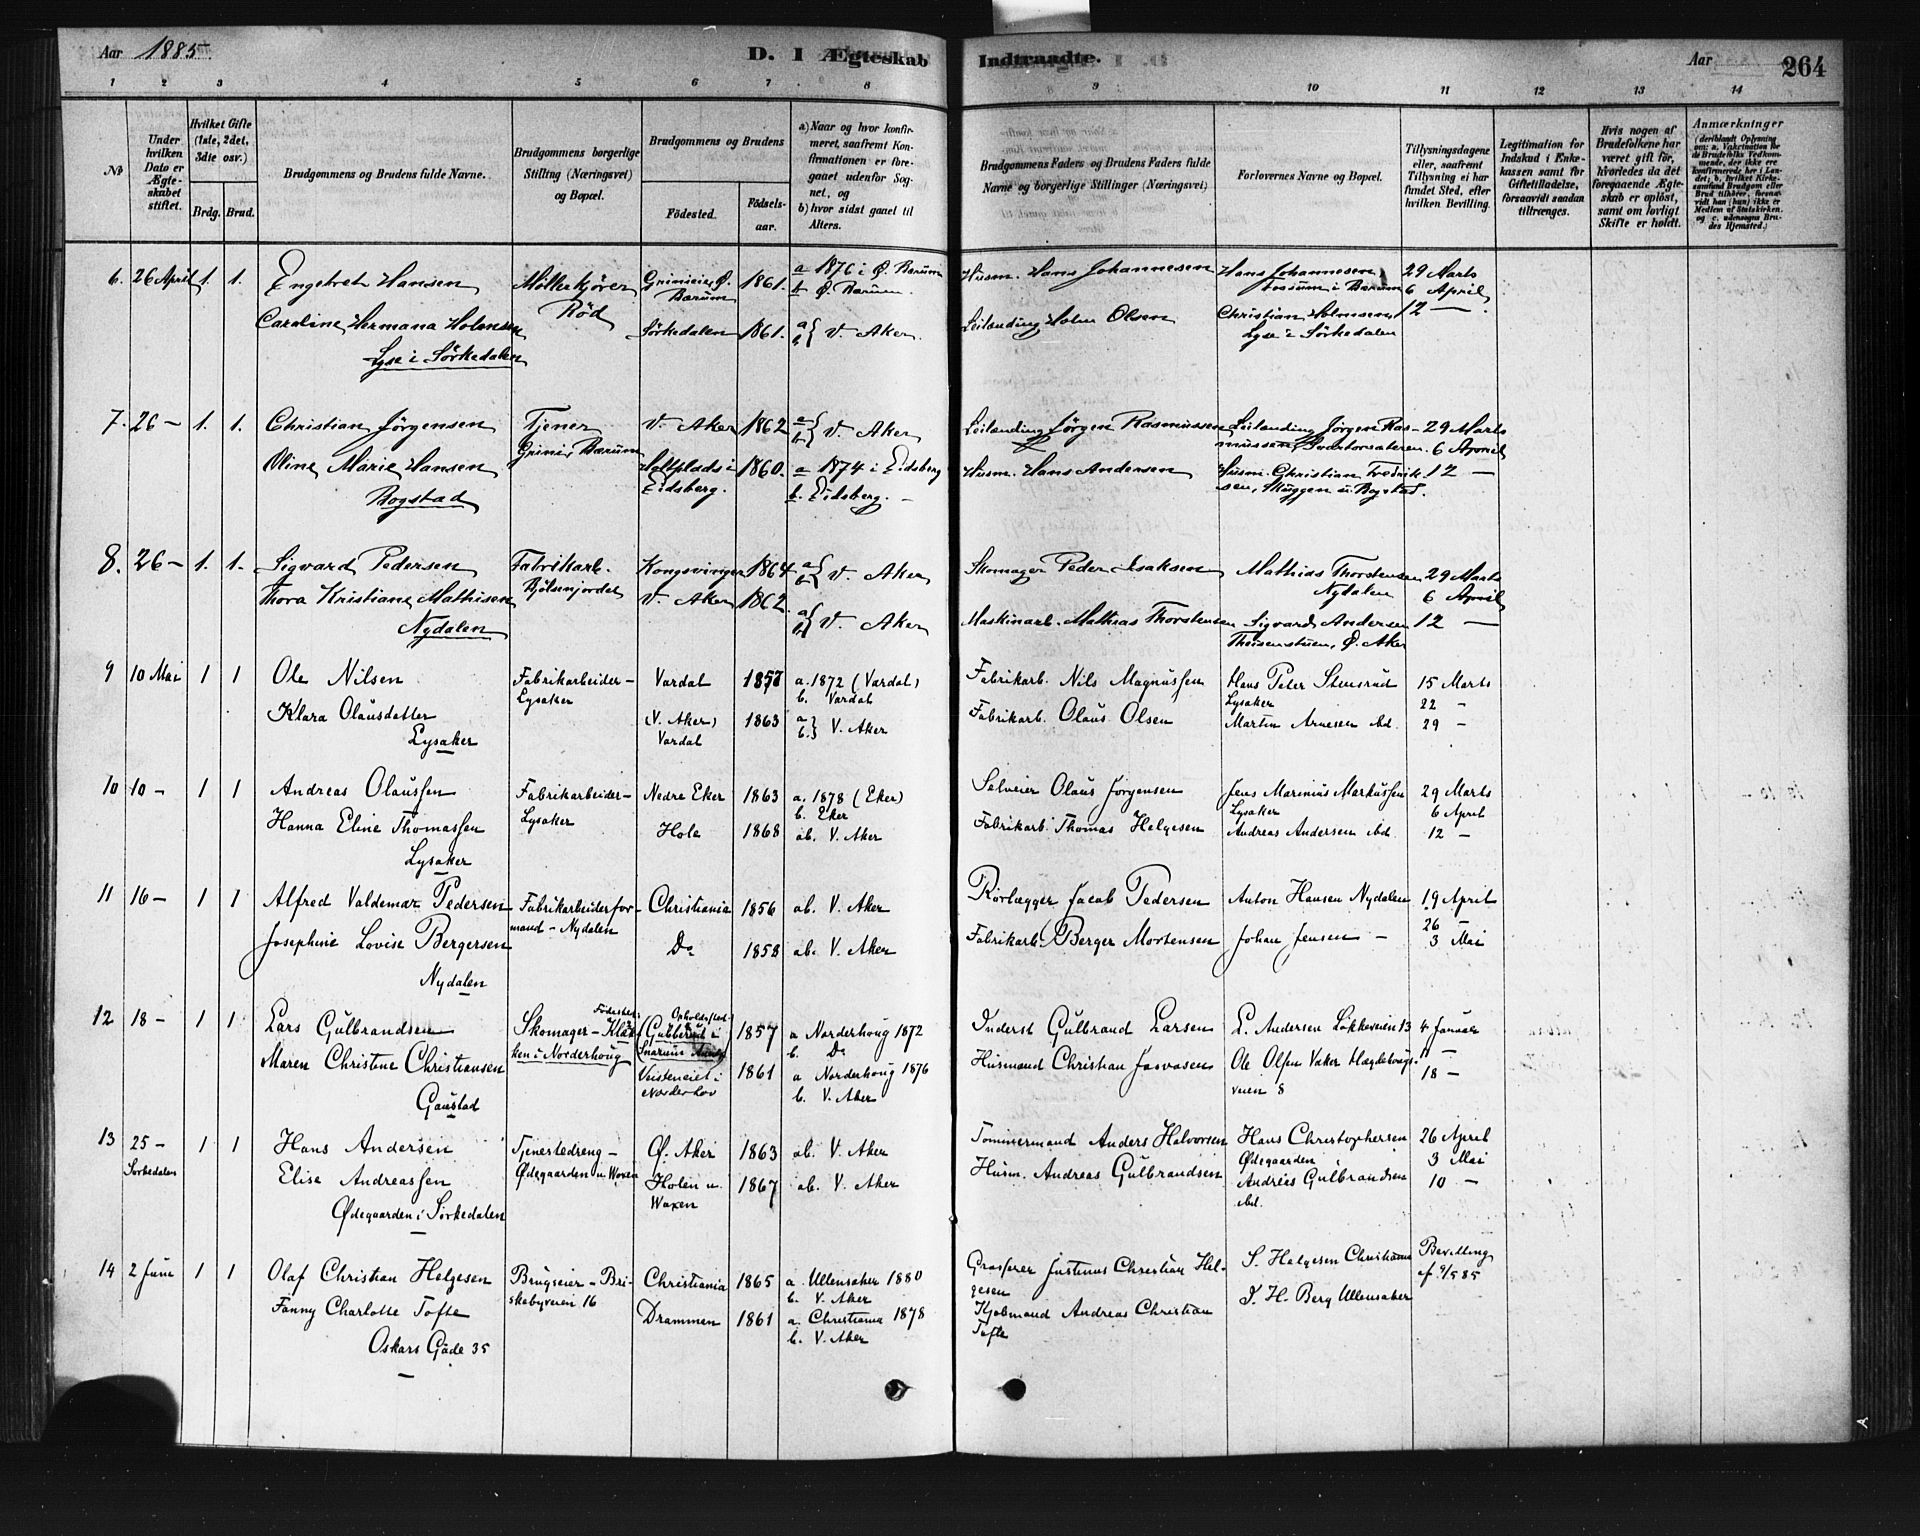 Aar 1885.
D. I Ægteskab
Indtraadte.
Aar
264
1 2 3 4 5 6 7 8 9 10 11 12 13 14
No
Under hvilken Dato er Ægteskabet stiftet.
Hvilket Gifte (1ste, 2det, 3die osv.)
Brdg. Brud.
Brudgommens og Brudens fulde Navne.
Brudgommens borgerlige Stilling (Næringsvei) og Bopæl.
Brudgommens og Brudens
Fødested.
Fødselsaar.
a) Naar og hvor konfirmeret, saafremt Konfirmationen er foregaaet udenfor Sognet, og
b) hvor sidst gaaet til Alters.
Brudgommens Faders og Brudens Faders fulde Navne og borgerlige Stillinger (Næringsvei)
Forlovernes Navne og Bopæl.
Tillysningsdagene eller, saafremt Tillysning ei har fundet Sted, efter hvilken Bevilling.
Legitimation for Indskud i Enkekassen samt for Giftetilladelse, forsaavidt saadan tiltrænges.
Hvis nogen af Brudefolkene har været gift før, hvorledes da det foregaaende Ægteskab er opløst, samt om lovligt Skifte er holdt.
Anmærkninger
6. 26 April 1. 1. Engebret Hansen Møllerkjører Rød Grinieie, Ø. Bærum 1861. a 1876 i Ø. Bærum b Ø. Bærum. Husm. Hans Johannesen Hans Johannesen i Bærum 29 Marts 6 April
Caroline Hermana Holmsen Sørkedalen 1861. a b } V. Aker. Leilænding Holm Olsen Christian Holmsen, Lyse i Sørkedalen 12 —
Lyse i Sørkedalen
7. 26 — 1. 1. Christian Jørgensen Tjener Grini i Bærum V. Aker 1862 a b } V. Aker Leilænding Jørgen Rasmussen Leilænding Jørgen Rasmussen, 29 Marts 6 April
Oline Marie Hansen Holtplads i Eidsberg. 1860. a 1874 i Eidsberg b. Eidsberg. — Husm. Hans Andersen Husm. Christian Fredriksen, Skuggen u. Bogstad. 12 —
Bogstad
8. 26 — 1. 1. Sigvard Pedersen Fabrikarb. Bjølsenjordet Kongsvinger 1864 a b } V. Aker Skomager Peder Isaksen Mathias Thorstensen Nydalen 29 Marts 6 April
Thora Kristiane Mathisen V. Aker 1862. a b } V. Aker Maskinarb. Mathias Thorstensen Sigvard Andersen Theisenstuen, Ø. Aker 12 —
Nydalen
9 10 Mai 1 1 Ole Nilsen Fabrikarbeider – Lysaker Vardal 1857 a. 1872 (Vardal) b. Vardal Fabrikarb. Nils Magnussen Hans Peter Stensrud Lysaker 15 Marts 22 –
Klara Olausdatter (V. Aker) Vardal 1863 a b. } V. Aker Fabrikarb. Olaus Olsen Martin Arnesen ibd. 29 –
Lysaker
10 10 – 1 1 Andreas Olaussen Fabrikarbeider – Lysaker Nedre Eker 1863 a. 1878 (Eker) b. Eker Selveier Olaus Jørgensen Jens Marinius Markussen Lysaker 29 Marts 6 April
Hanna Eline Thomassen Hole 1868 ab. V. Aker Fabrikarb. Thomas Helgesen Andreas Andersen ibd. 12 –
Lysaker
11 16 – 1 1 Alfred Valdemar Pedersen Fabrikarbeiderformand – Nydalen Christiania 1856 ab. V. Aker Rørlægger Jacob Pedersen Anton Hansen Nydalen 19 April 26 –
Josephine Lovise Bergersen Do 1858 ab. V. Aker Fabrikarb. Berger Mortensen Johan Jensen – 3 Mai
Nydalen
12 18 – 1 1 Lars Gulbrandsen Skomager – Klækken i Norderhoug Fødested: Opholdssted: Gulberud i Snarum 1857 a Norderhoug 1872 b. Do Inderst Gulbrand Larsen L. Andersen Løkkeveien 13 4 Januar
Maren Christine Christiansen Veisteneiet i Norderhov 1861 a Norderhoug 1876 b. V. Aker Husmand Christian Ole Olsen Vaker Hægdehaugsveien 8 11 – 18 –
Gaustad
13 25 – Sørkedalen 1 1 Hans Andersen Tjenestedreng – Ødegaarden u. Woxen Ø. Aker 1863 ab. V. Aker Tømmermand Anders Halvorsen Hans Christophersen Ødegaarden 26 April 3 Mai
Elise Andreassen Holen u. Woxen 1867 ab. V. Aker Husm. Andreas Gulbrandsen Andreas Gulbrandsen ibd. 10 –
Ødegaarden i Sørkedalen
14 2 Juni 1 1 Olaf Christian Helgesen Brugseier – Briskebyveien 16 Christiania 1865 a. Ullensaker 1880 b. V. Aker Grosserer Justinus Christian Helgesen S. Helgesen Christiania Bevilling af 9/5 85
Fanny Charlotte Tofte Drammen 1861 a. Christiania 1878 b. V. Aker Kjøbmand Andreas Christian Tofte J. H. Berg Ullensaker
Oskars Gade 35